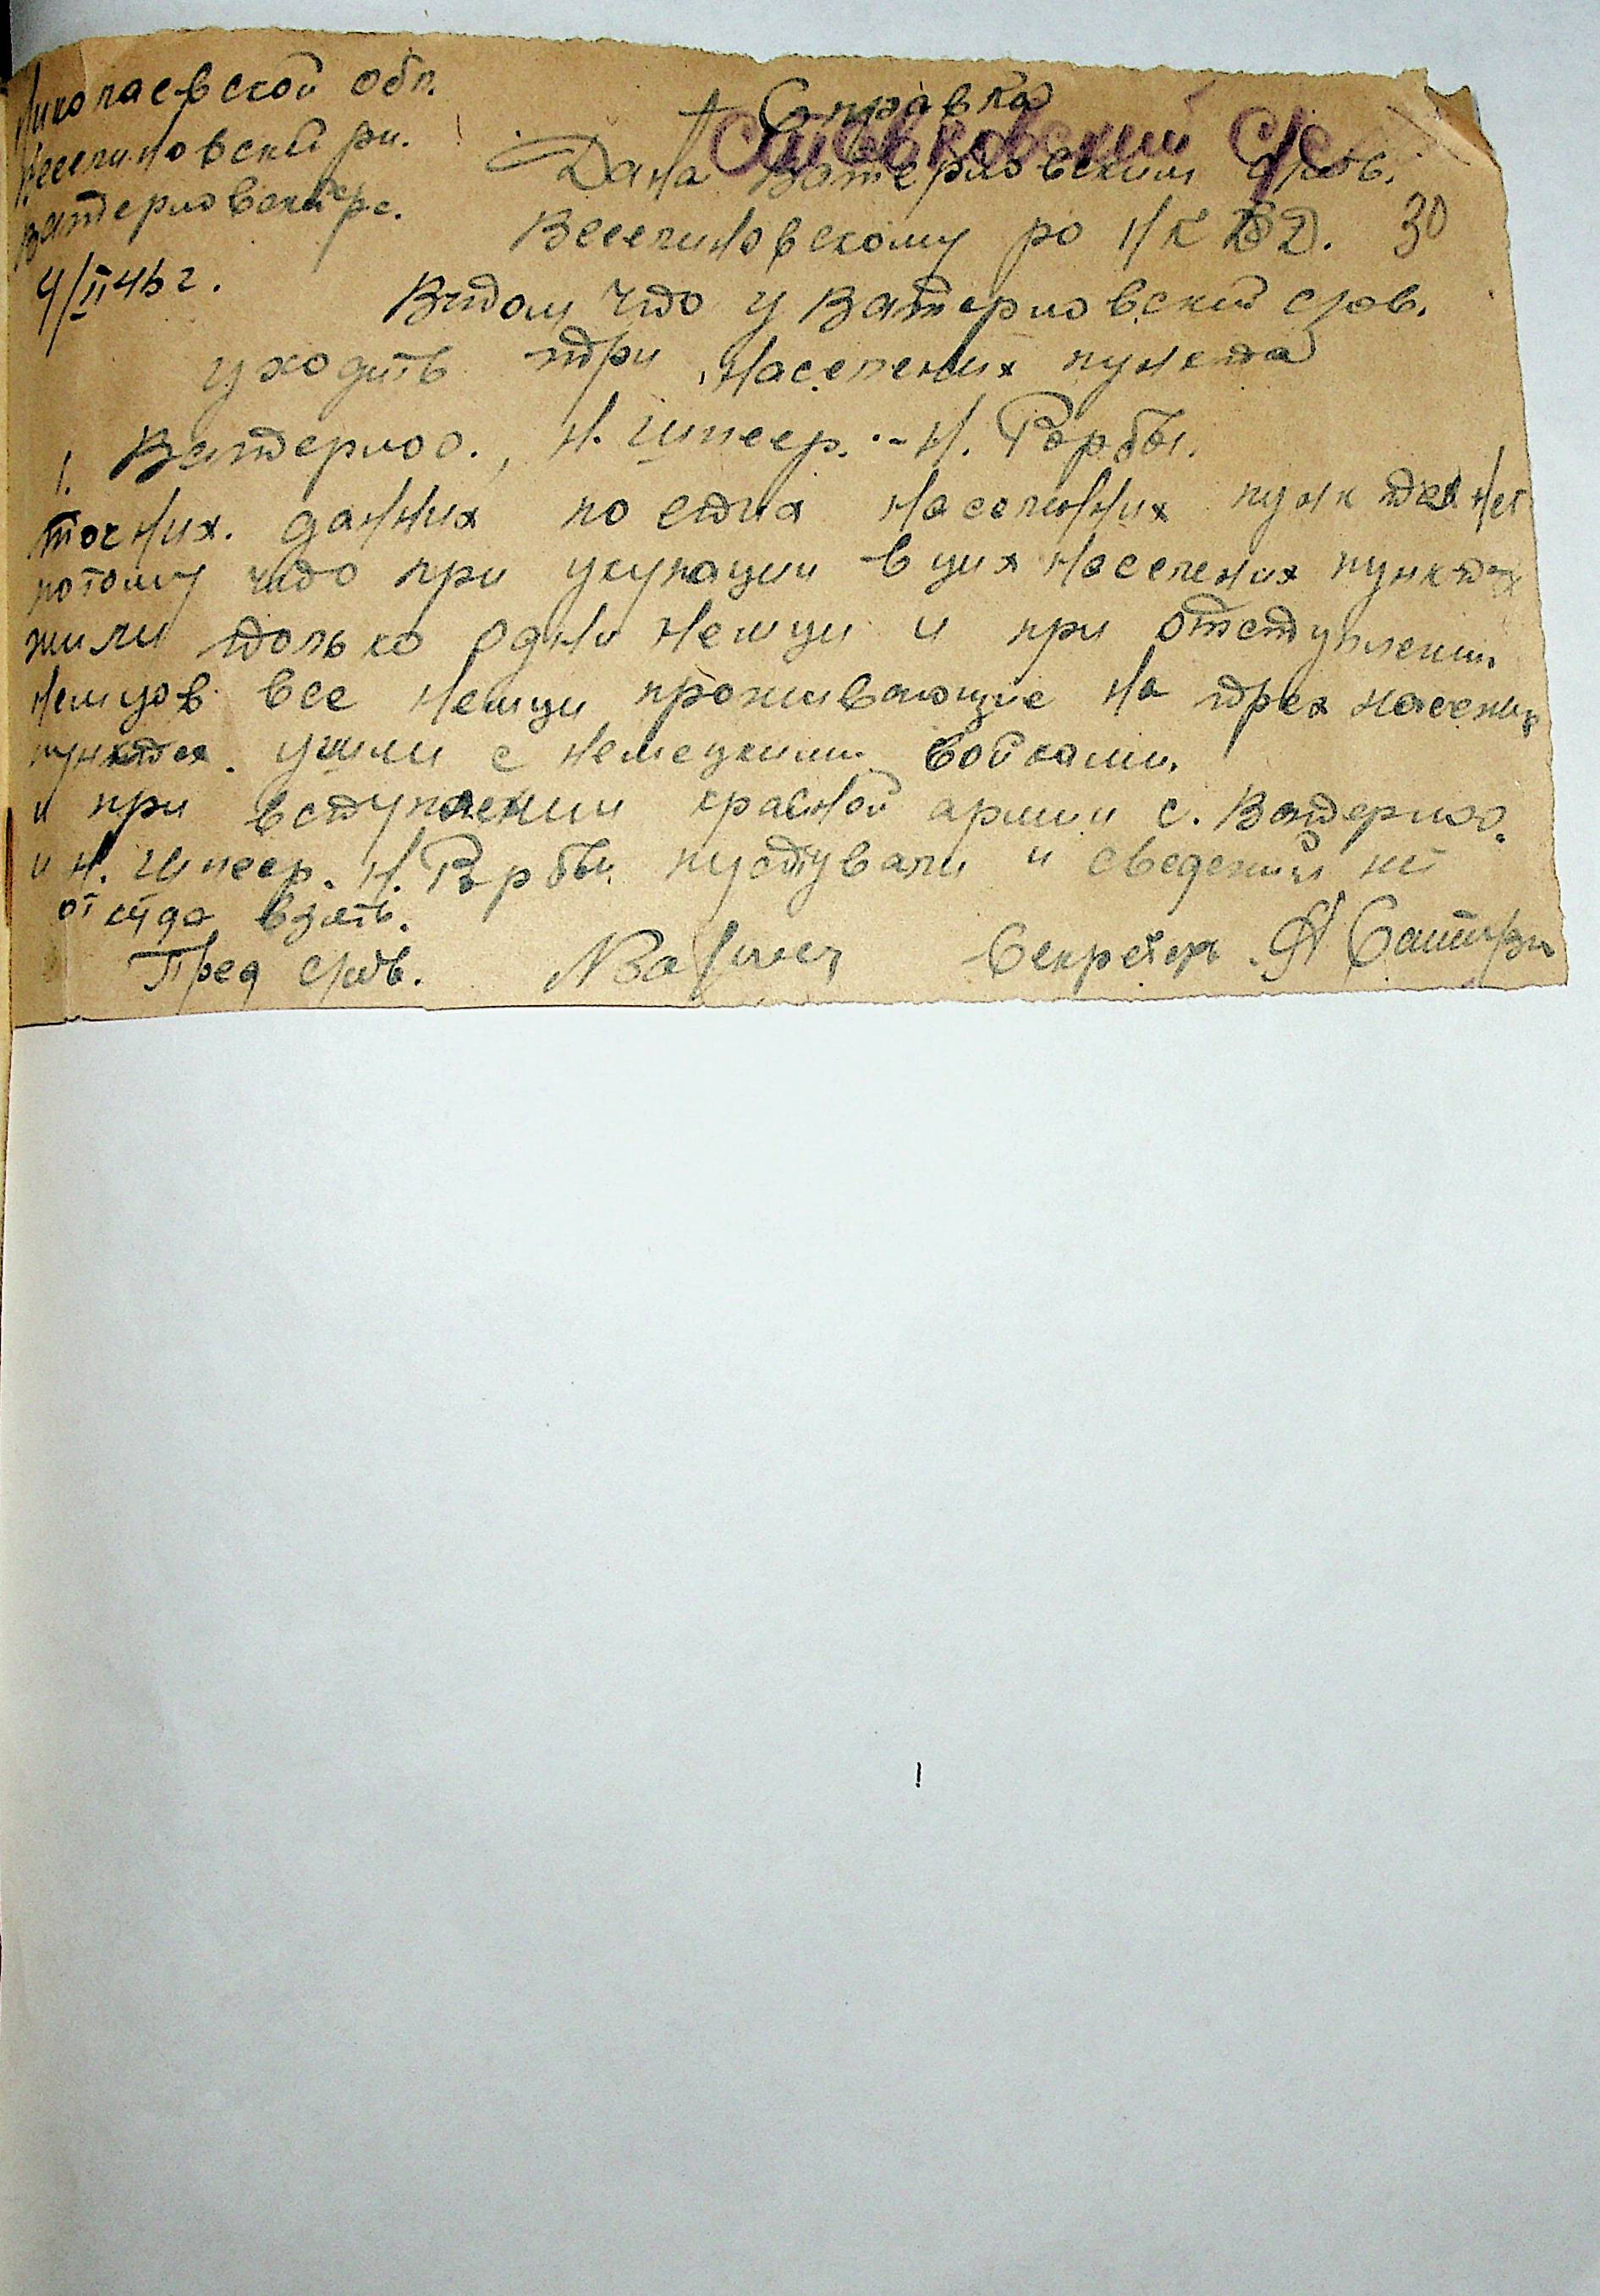 Николаевской обл.
Веселиновский рн.
Ватерловский с/с.
4/II 46 г.
Справка
Ставковский с/с
Дана Ватерловским с/сов.
Веселиновскому ро НКВД. 30
Втом, что у Ватерловский с/сов.
уходить три населених пункта
1. Ватерлоо., Н. Шпеер. - Н. Рорбы.
точних. даних по етих населинних пунктах нет
потому что при укупации в цих населених пунктах
жили только одни немци и при отступлении.
немцов все немци проживающие на трех населних
пунктах. ушли с немецкими войками.
и при вступлении красной армии с. Ватерлоо.
и Н. Шпеер. Н. Рорбы пустували и сведений не
от куда взять.
Пред с/сов. Секретарь